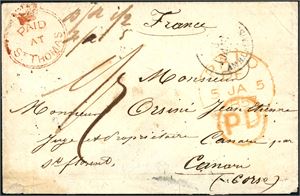 PAID
AT
ST THOMAS
France
5 JA 5
PD
Monsieur
Monsieur
Orsini Jean Etienne
Juge et Propriétaire Canari par
St florent
Canari
(Corse)